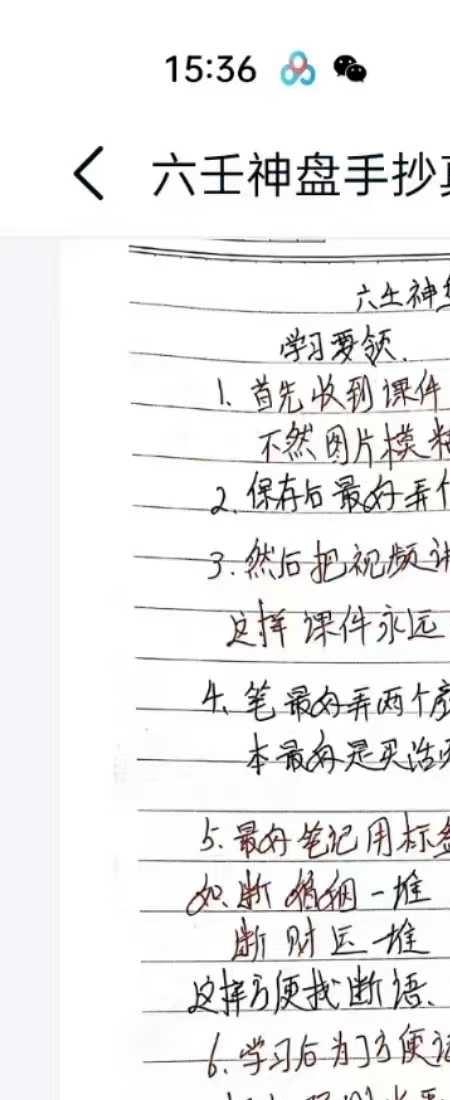 15:36
六壬神盘手抄
六壬神
学习要领.
1. 首先收到课件
不然图片模
2. 保存后最好弄个
3. 然后把视频
这样课件永远
4. 笔最好弄两个
本最好是买活
5. 最好笔记用标
如.断婚姻一堆
断财运一堆
这样方便找断语.
6. 学习后为了方便